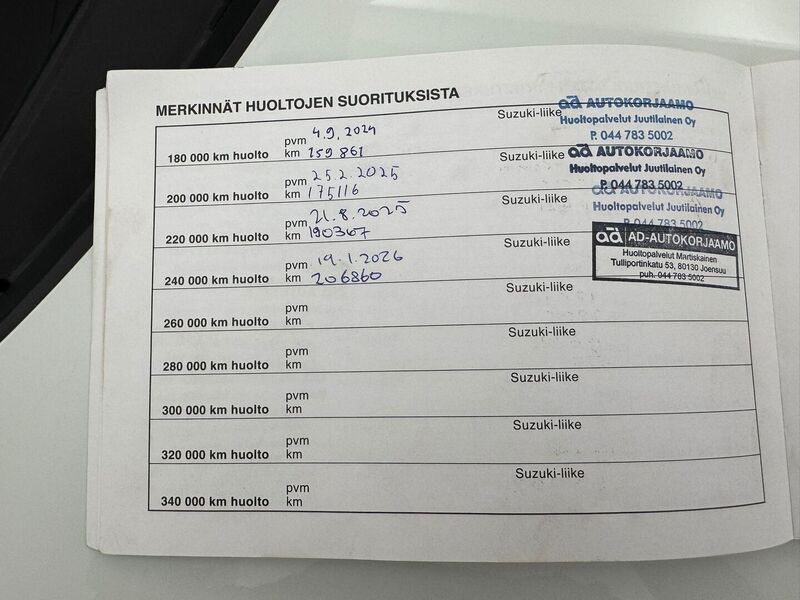 MERKINNÄT HUOLTOJEN SUORITUKSISTA
180 000 km huolto pvm 4.9.2024 km 159861 Suzuki-liike
ad AUTOKORJAAMO
Huoltopalvelut Juutilainen Oy
P. 044 783 5002
200 000 km huolto pvm 25.2.2025 km 175116 Suzuki-liike
ad AUTOKORJAAMO
Huoltopalvelut Juutilainen Oy
P. 044 783 5002
220 000 km huolto pvm 21.8.2025 km 190367 Suzuki-liike
ad AUTOKORJAAMO
Huoltopalvelut Juutilainen Oy
P. 044 783 5002
240 000 km huolto pvm 19.1.2026 km 206860 Suzuki-liike
ad AD-AUTOKORJAAMO
Huoltopalvelut Martiskainen
Tulliportinkatu 53, 80130 Joensuu
puh. 044 783 5002
260 000 km huolto pvm km Suzuki-liike
280 000 km huolto pvm km Suzuki-liike
300 000 km huolto pvm km Suzuki-liike
320 000 km huolto pvm km Suzuki-liike
340 000 km huolto pvm km Suzuki-liike